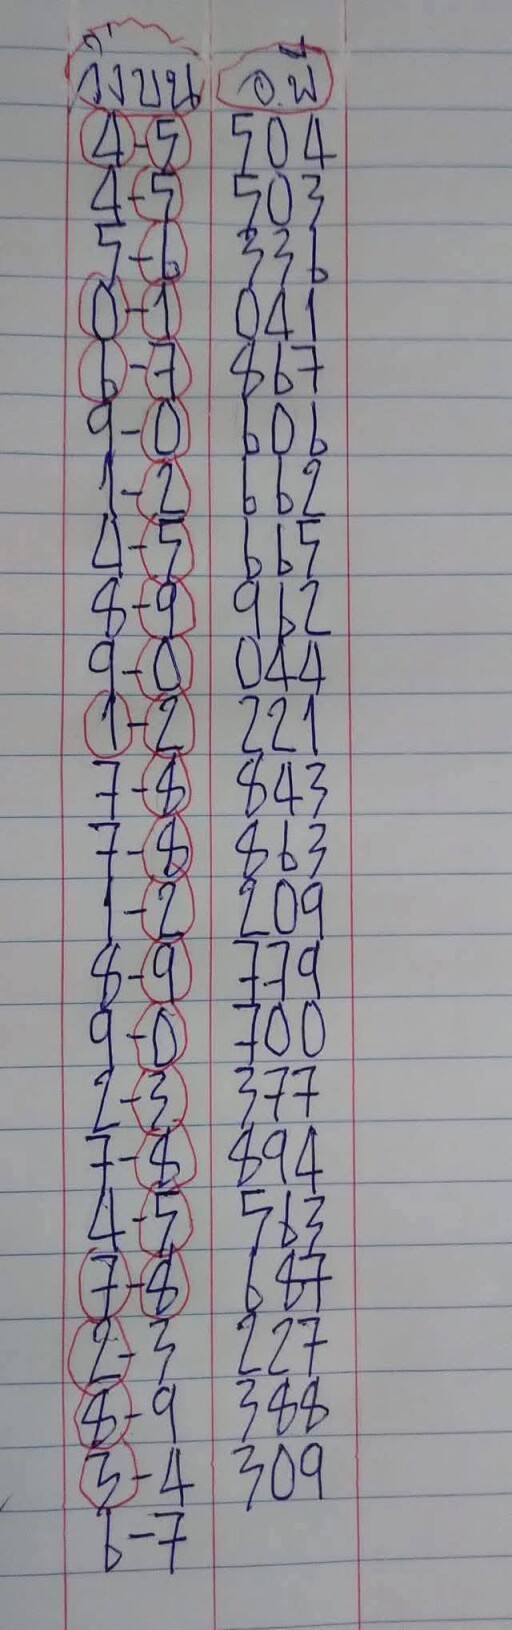 วิ่งบน อ.พี่
4-5 504
4-5 503
5-6 336
0-1 041
6-7 867
9-0 606
1-2 662
4-5 665
8-9 962
9-0 044
1-2 221
7-8 843
7-8 863
1-2 209
8-9 779
9-0 700
2-3 377
7-8 894
4-5 563
7-8 687
2-3 227
8-9 388
3-4 309
6-7